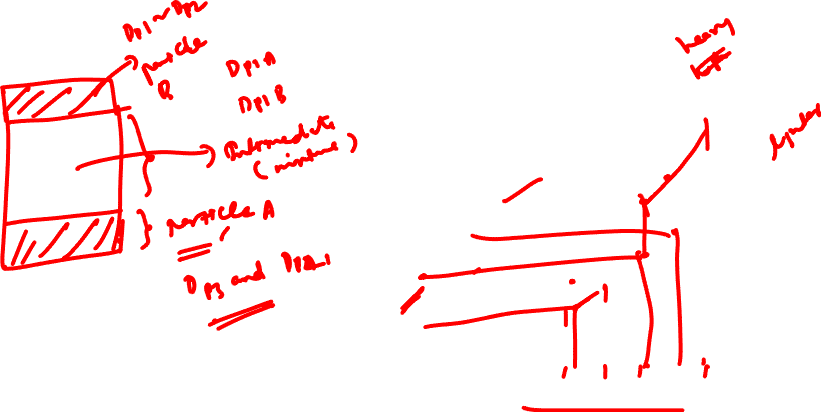 Dp1 - Dp2
particle
B
Dp1 A
Dp1 B
Intermediate
(mixture)
particle A
Dp3 and
heavy
lighter